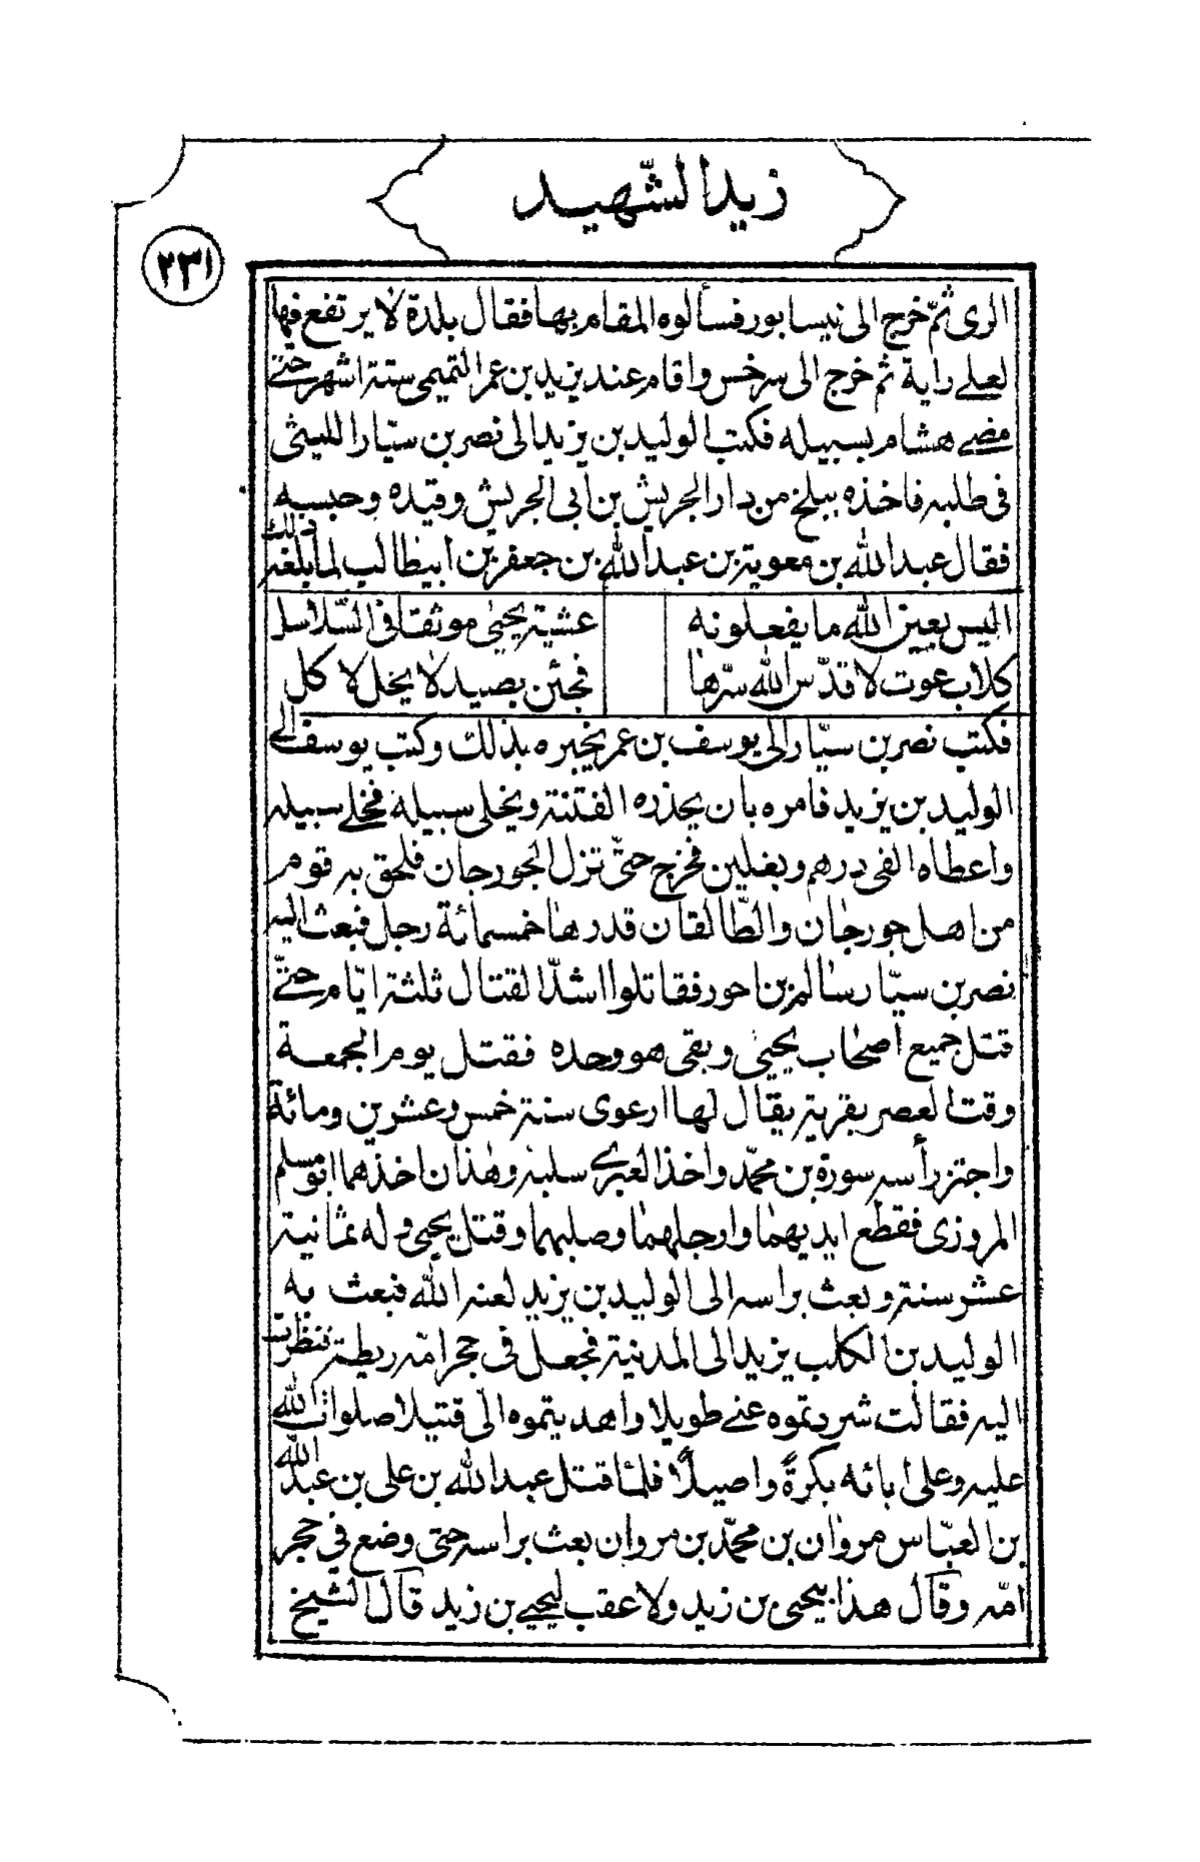 زيد الشّهيد
٢٣١
الرى ثمّ خرج الى نيسابور فسألوه المقام بها فقال بلدة لا يرتفع فيها
لعلى راية ثم خرج الى سرخس واقام عند يزيد بن عمر التميمى ستة اشهر حتى
مضى هشام بسبيله فكتب الوليد بن يزيد الى نصر بن سيّار الليثى
فى طلبه فاخذه ببلخ من دار الجريش بن أبى الجريش وقيده وحبسه
فقال عبد الله بن معوية بن عبد الله بن جعفر بن ابيطالب لما بلغه ذلك
اليس بعين الله ما يفعلونه عشية يحيى موثقا فى السّلاسل
كلاب عوت لا قدّس الله سرّها فجئن بصيد لا يحل لا كل
فكتب نصر بن سيّار الى يوسف بن عمر يخبره بذلك وكتب يوسف الى
الوليد بن يزيد فامره بان يحذره الفتنة ويخلى سبيله فخلى سبيله
واعطاه الفى درهم وبغلين فخرج حتّى نزل الجورجان فلحق به قوم
من اهل جورجان والطّالقان قدرها خمسمائة رجل فبعث اليه
نصر بن سيّار سالم بن احور فقاتلوا اشدّ القتال ثلثة ايّام حتّى
قتل جميع اصحاب يحيى وبقى هو وحده فقتل يوم الجمعة
وقت العصر بقرية يقال لها ارعوى سنة خمس وعشرين ومائة
واجتز رأسه سورة بن محمّد واخذ العبرى سلبه وهذان اخذهما ابو مسلم
المروزى فقطع ايديهما وارجلهما وصلبهما وقتل يحيى وله ثمانية
عشر سنة وبعث براسه الى الوليد بن يزيد لعنه الله فبعث به
الوليد بن الكلب يزيد الى المدينة فجعل فى حجر امّه ريطة فنظرت
اليه فقالت شردتموه عنى طويلا واهديتموه الىّ قتيلا صلوات الله
عليه وعلى ابائه بكرةً واصيلاً فلمّا قتل عبد الله بن على بن عبد الله
بن العبّاس مروان بن محمّد بن مروان بعث براسه حتى وضع فى حجر
امّه وقال هذا بيحيى بن زيد ولا عقب ليحيى بن زيد قال الشيخ